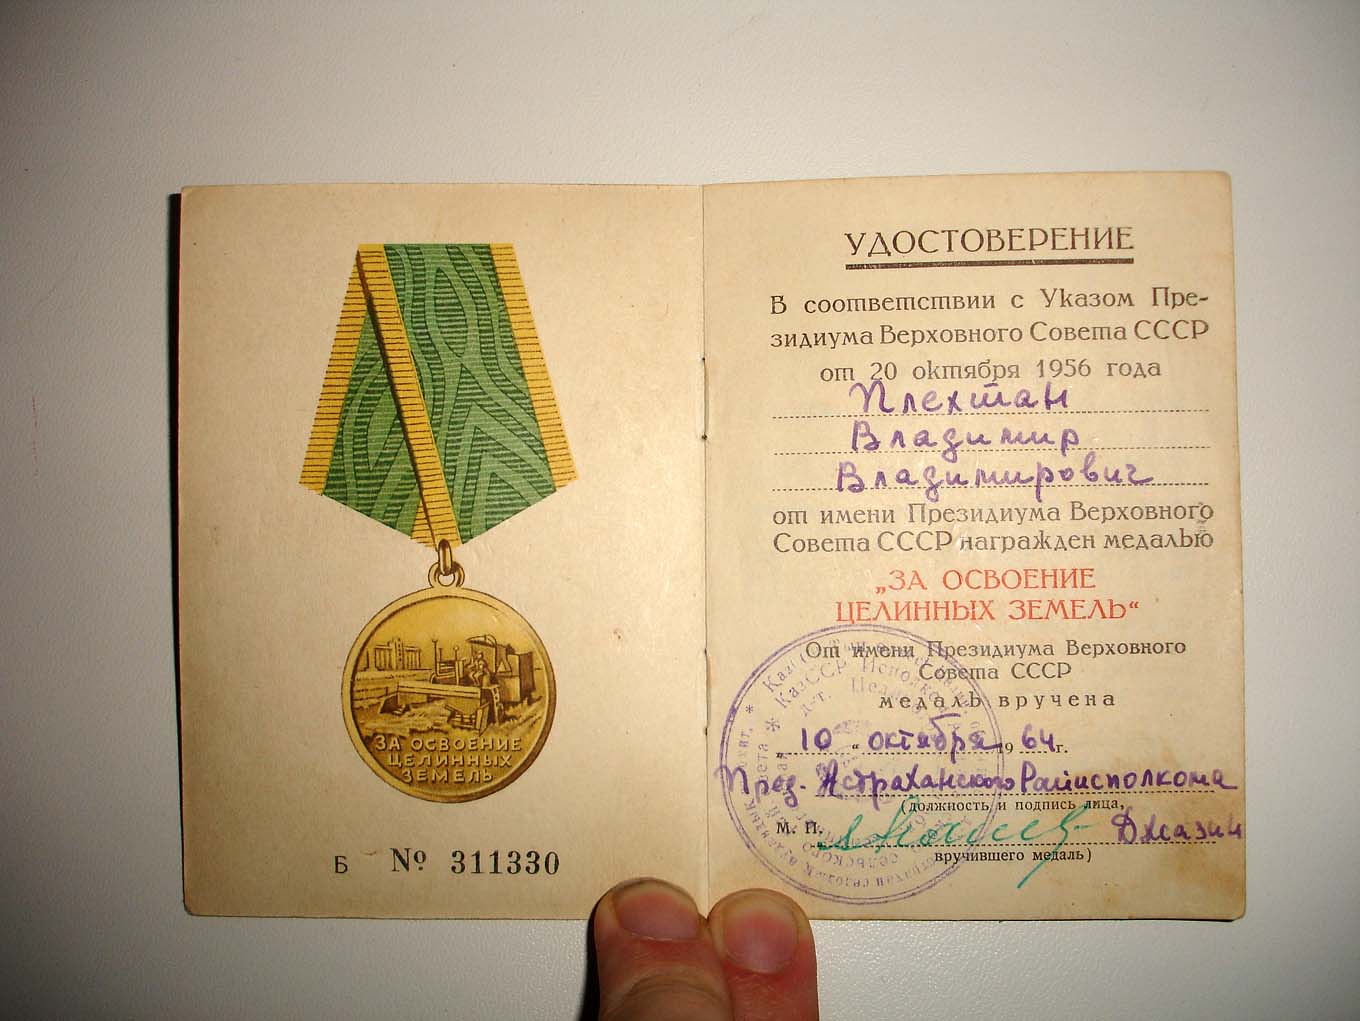 ЗА ОСВОЕНИЕ
ЦЕЛИННЫХ
ЗЕМЕЛЬ
Б № 311330
УДОСТОВЕРЕНИЕ
В соответствии с Указом Пре-
зидиума Верховного Совета СССР
от 20 октября 1956 года
Плехтан
Владимир
Владимирович
от имени Президиума Верховного
Совета СССР награжден медалью
„ЗА ОСВОЕНИЕ
ЦЕЛИННЫХ ЗЕМЕЛЬ“
От имени Президиума Верховного
Совета СССР
медаль вручена
„10“ октября 1964 г.
Пред. Астраханского Райисполкома
(должность и подпись лица,
М. П.
вручившего медаль)
КазССР Исполком